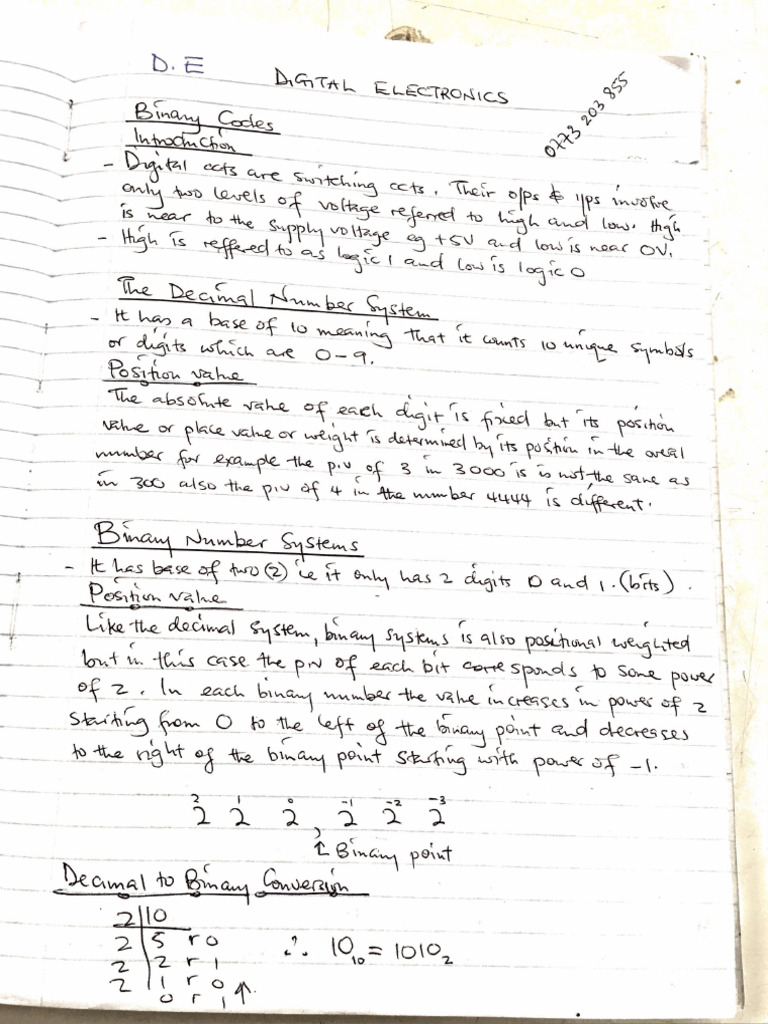 D.E
DIGITAL ELECTRONICS
0773 203 855
Binary Codes
Introduction
- Digital ccts are switching ccts. Their o/ps & i/ps involve
only two levels of voltage referred to high and low. High
is near to the supply voltage eg +5V and low is near 0V.
- High is reffered to as logic 1 and low is logic 0
The Decimal Number System
- It has a base of 10 meaning that it counts 10 unique symbols
or digits which are 0-9.
Position value
The absolute value of each digit is fixed but its position
value or place value or weight is determined by its position in the overal
number for example the p.v of 3 in 3000 is is not the same as
in 300 also the p.v of 4 in the number 4444 is different.
Binary Number Systems
- It has base of two (2) ie it only has 2 digits 0 and 1. (bits).
Position value
Like the decimal system, binary systems is also positional weighted
but in this case the pv of each bit corresponds to some power
of 2. In each binary number the value increases in power of 2
starting from 0 to the left of the binary point and decreases
to the right of the binary point starting with power of -1.
2² 2¹ 2⁰ , 2⁻¹ 2⁻² 2⁻³
↑ Binary point
Decimal to Binary Conversion
2 | 10
2 | 5 r 0 ∴ 10₁₀ = 1010₂
2 | 2 r 1
2 | 1 r 0
0 r 1 ↑